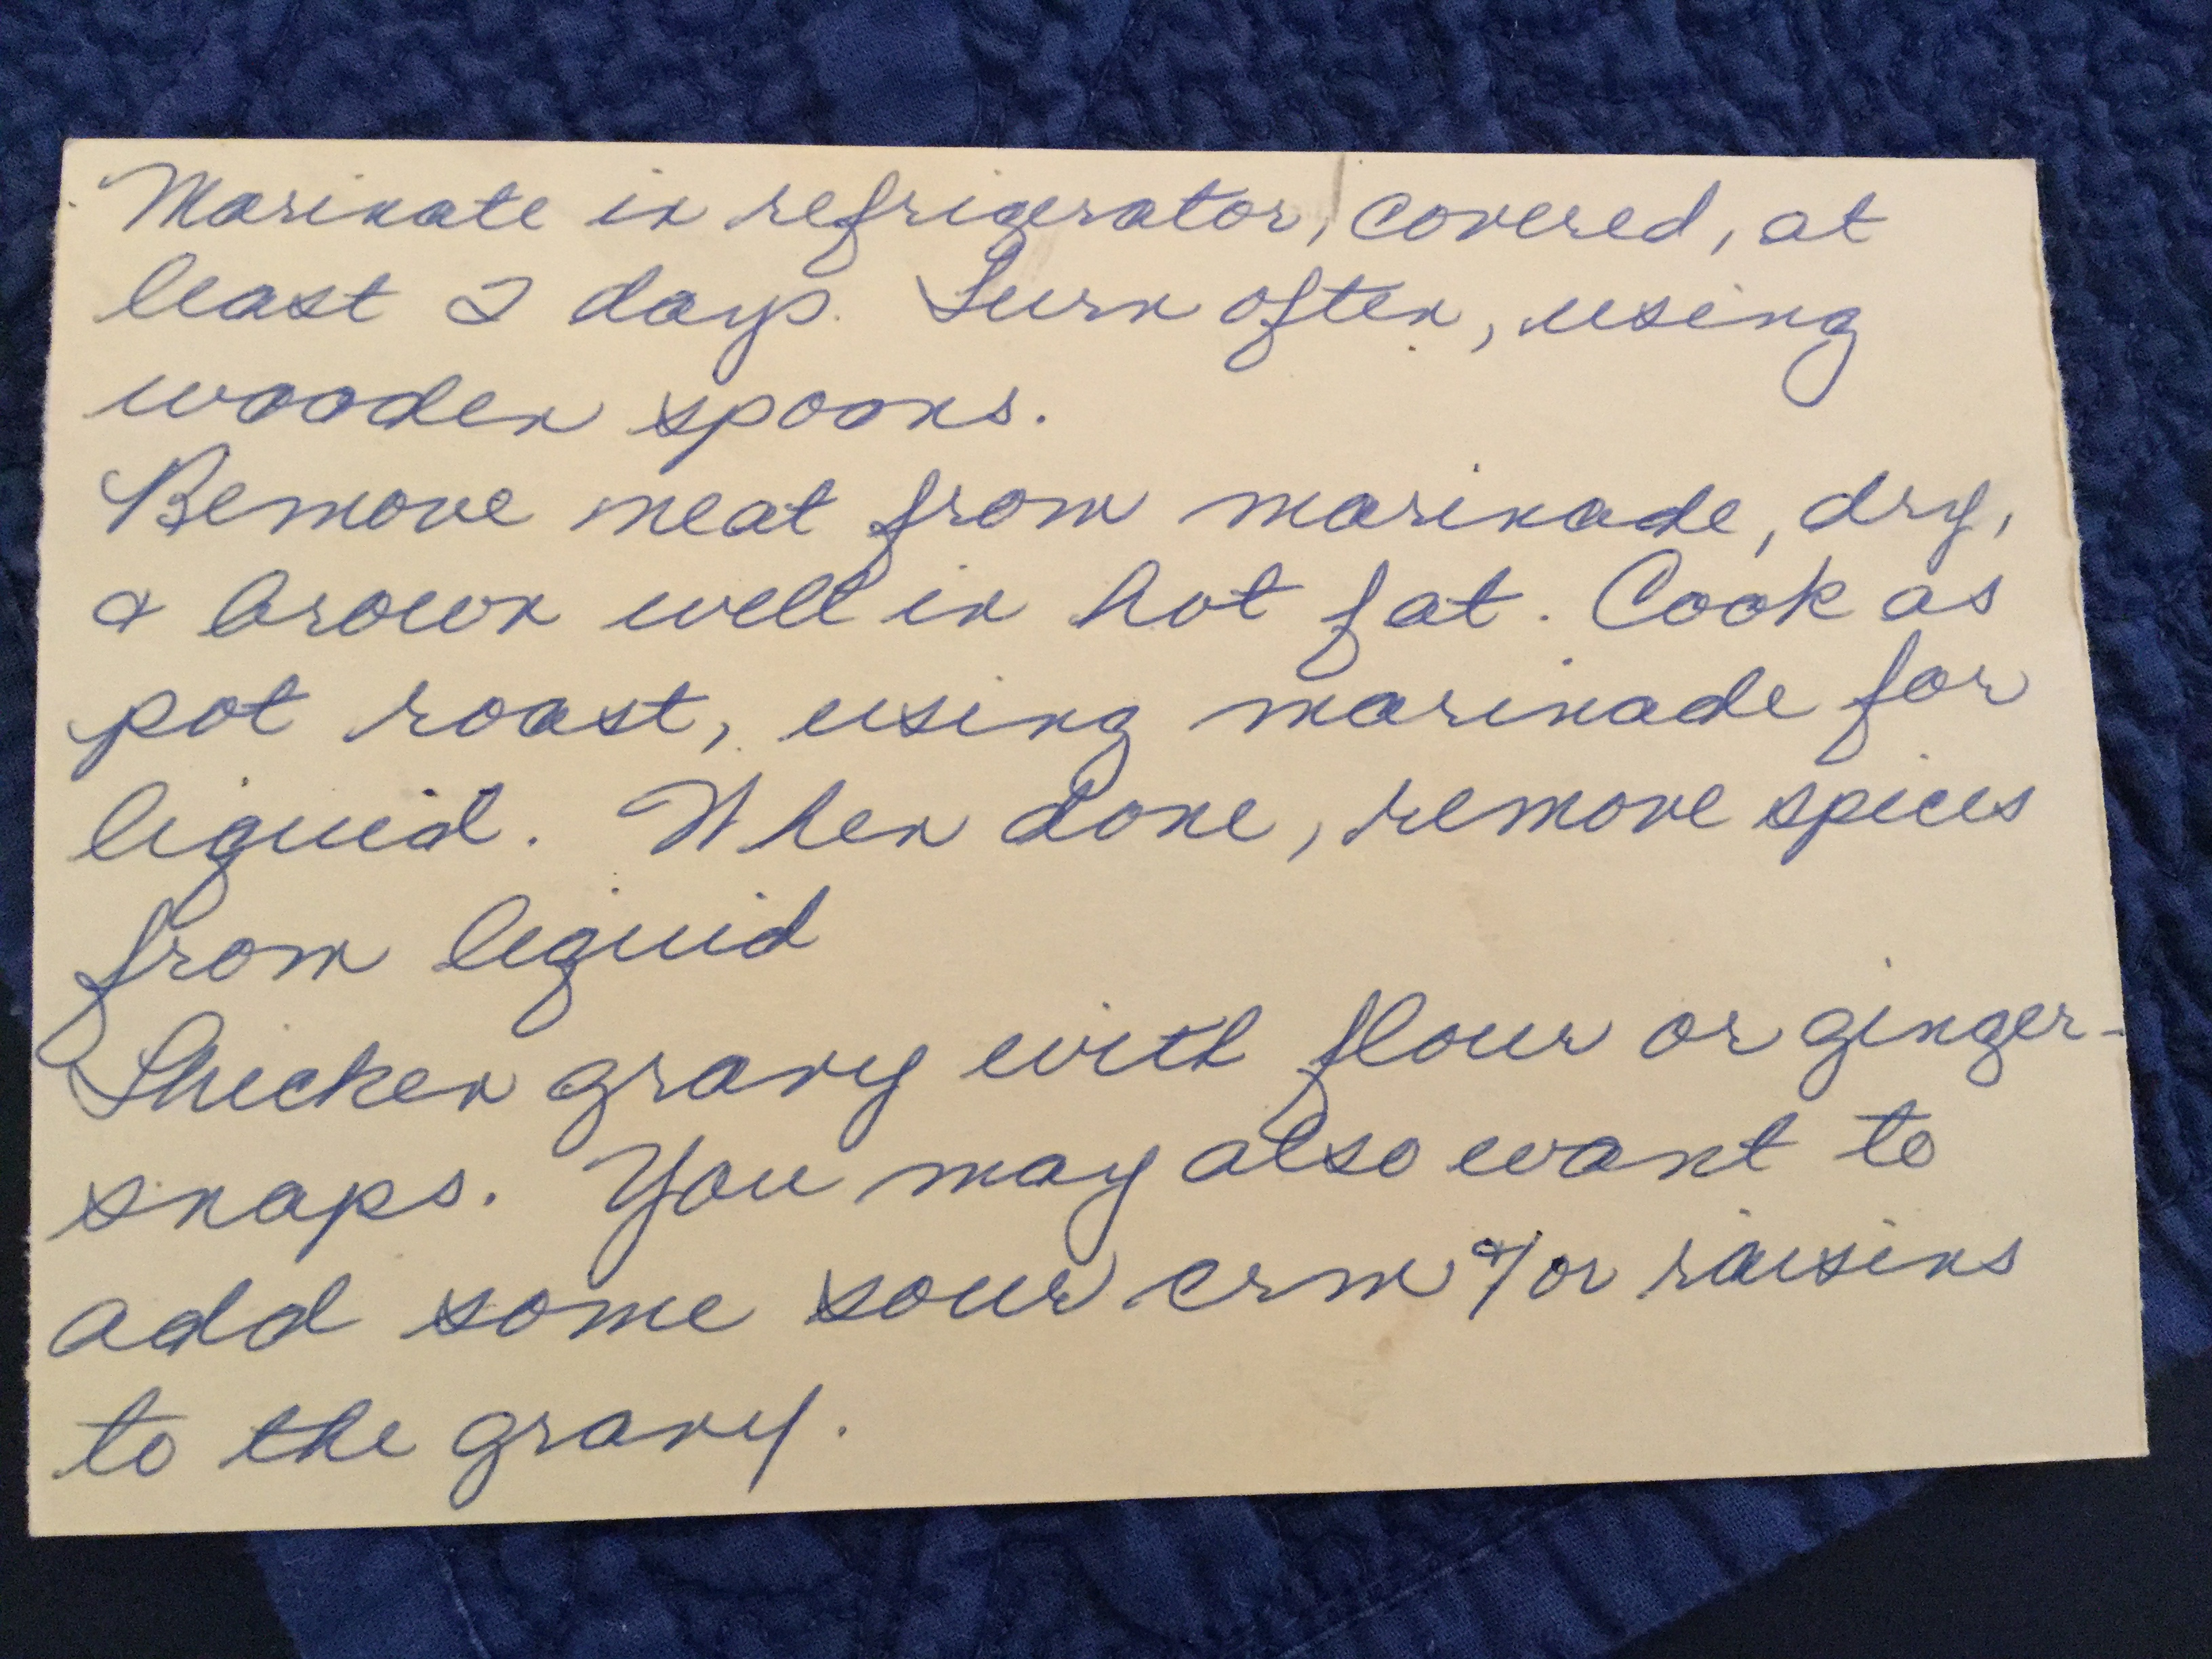 Marinate in refrigerator, covered, at
least 2 days. Turn often, using
wooden spoons.
Remove meat from marinade, dry,
& brown well in hot fat. Cook as
pot roast, using marinade for
liquid. When done, remove spices
from liquid
Thicken gravy with flour or ginger-
snaps. You may also want to
add some sour crm &/or raisins
to the gravy.